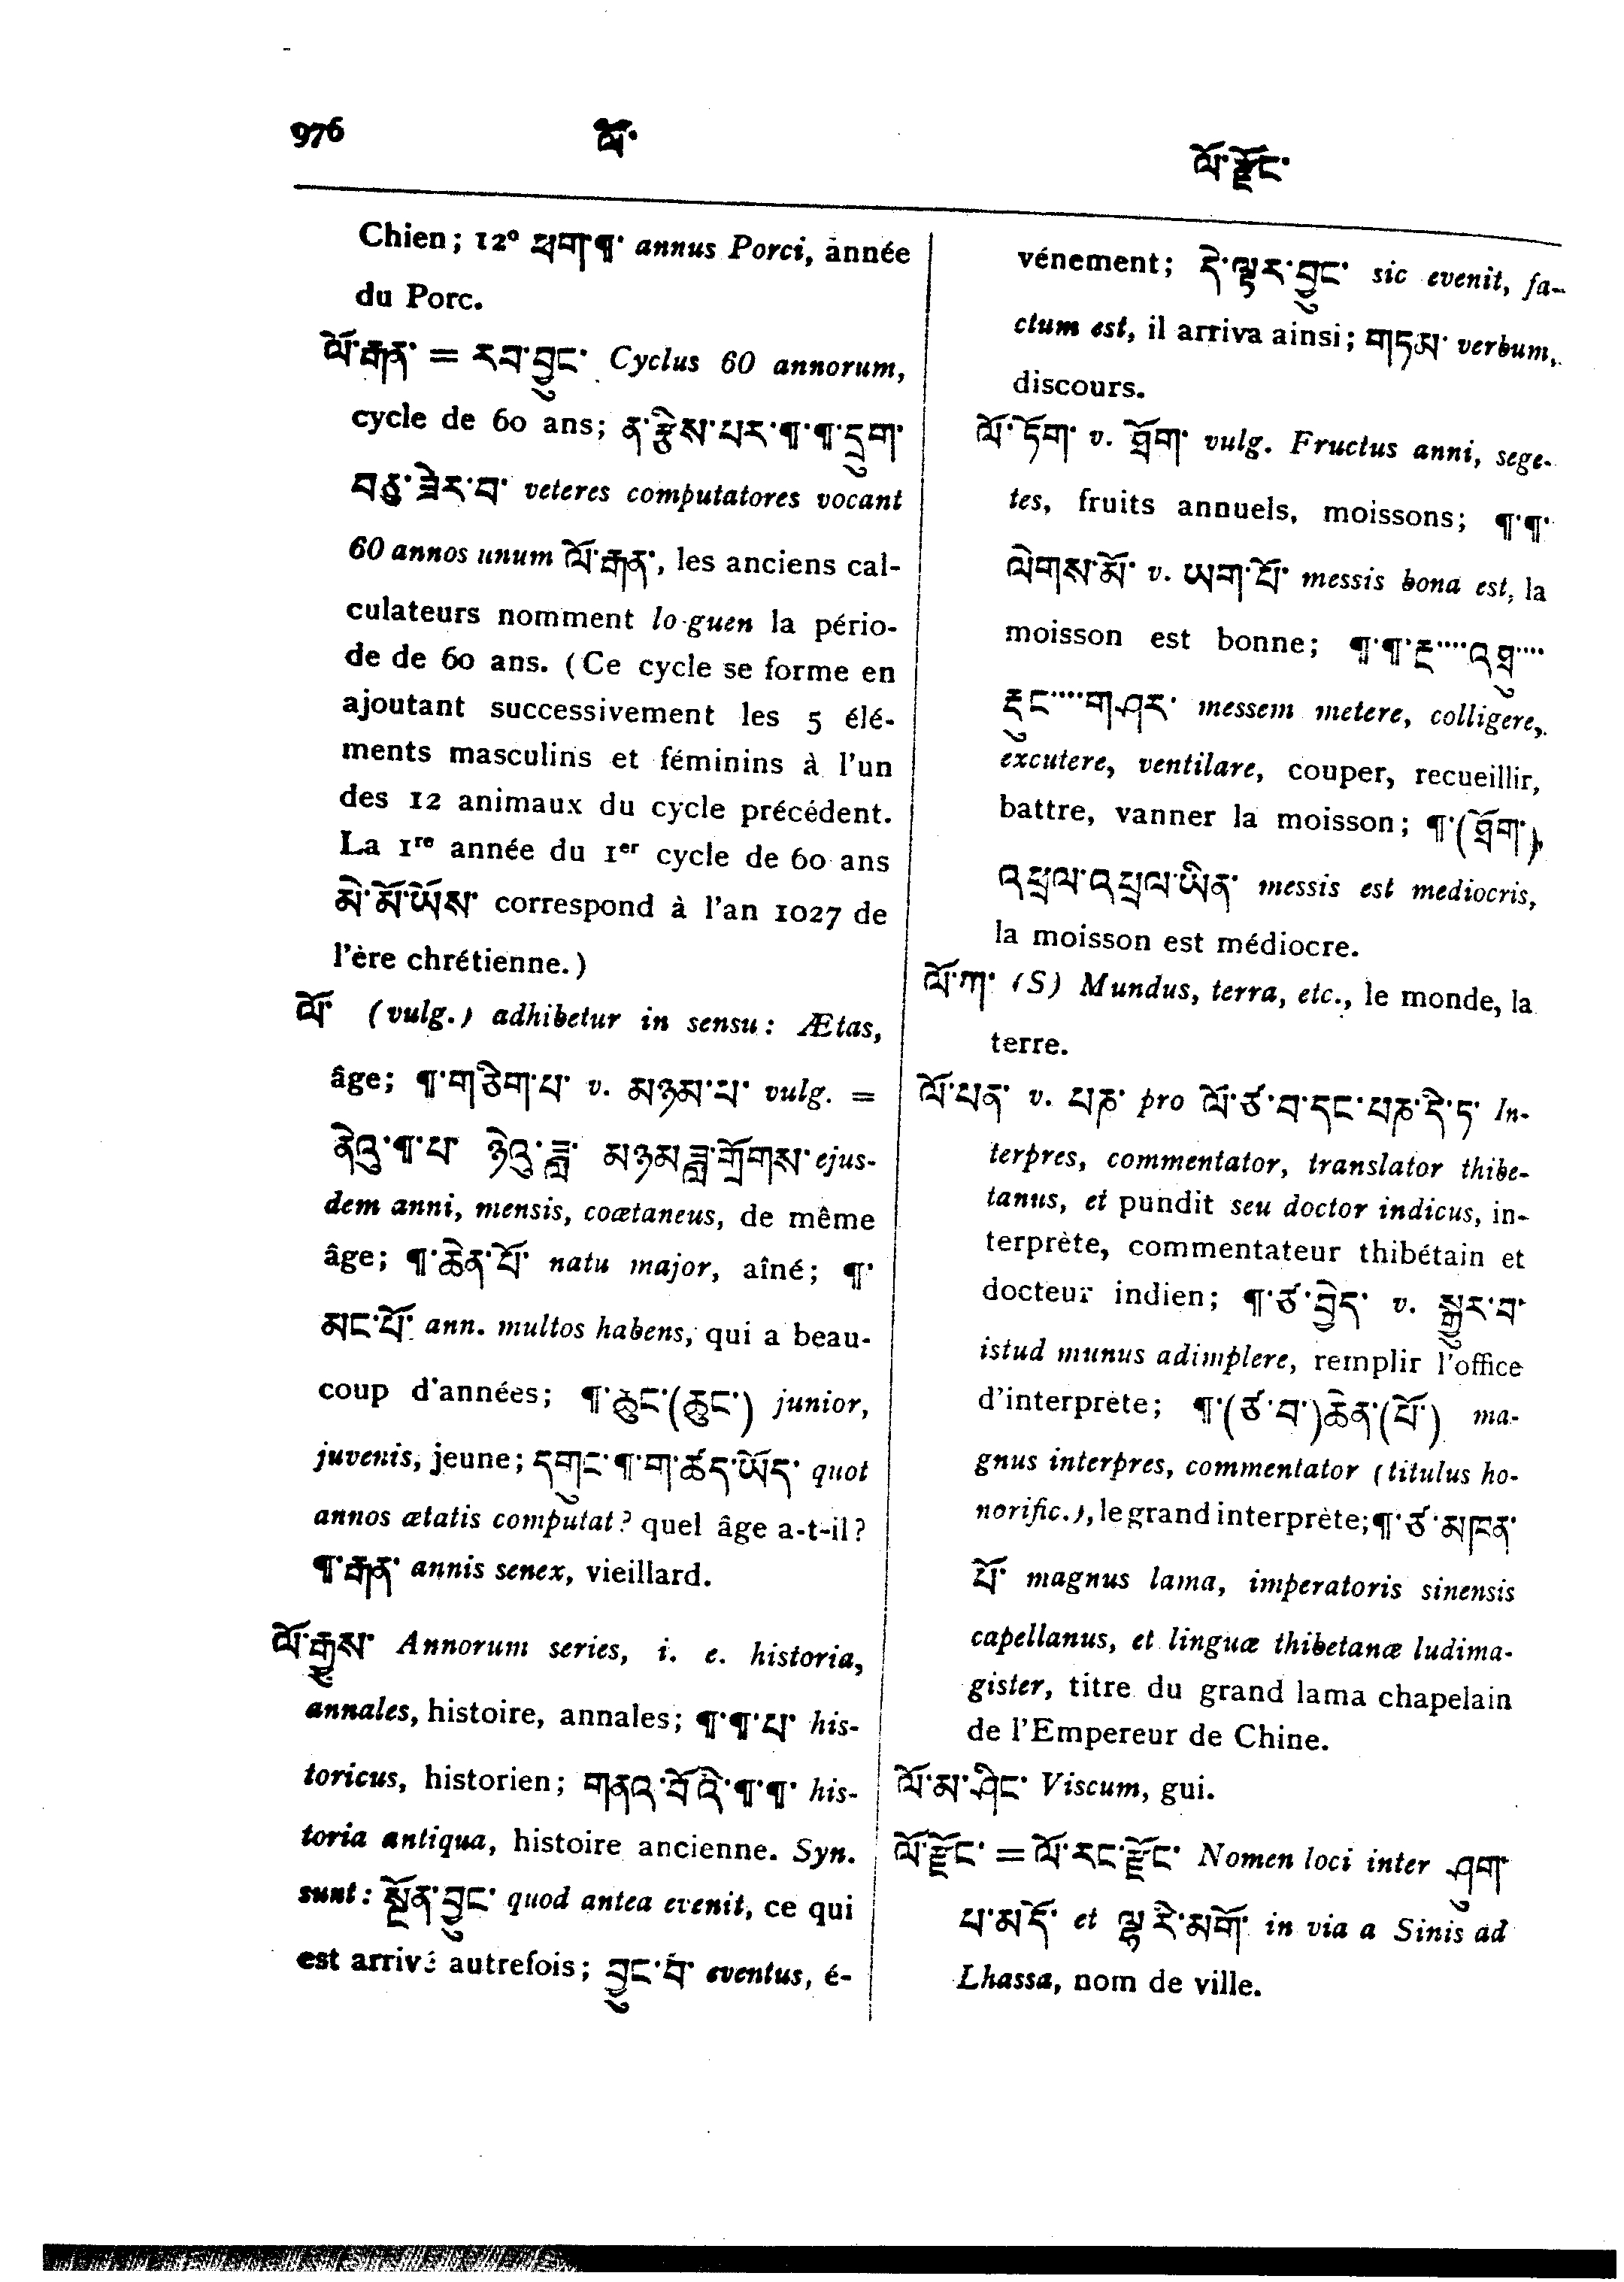 976 ལོ་ ལོ་རྫོང་
Chien; 12º ཕག་¶་ annus Porci, année
du Porc.
ལོ་རྒན་ = རབ་བྱུང་ Cyclus 60 annorum,
cycle de 60 ans; ན་རྩིས་པར་¶་¶་དྲུག་
བཅུ་ཟེར་བ་ veteres computatores vocant
60 annos unum ལོ་རྒན་, les anciens cal-
culateurs nomment lo-guen la pério-
de de 60 ans. (Ce cycle se forme en
ajoutant successivement les 5 élé-
ments masculins et féminins à l'un
des 12 animaux du cycle précédent.
La 1re année du 1er cycle de 60 ans
མེ་མོ་ཡོས་ correspond à l'an 1027 de
l'ère chrétienne.)
ལོ་ (vulg.) adhibetur in sensu: Ætas,
âge; ¶་གཅིག་པ་ v. མཉམ་པ་ vulg. =
ནེའུ་¶་པ་ ཉེའུ་ཟླ་ མཉམ་ཟླ་གྲོགས་ ejus-
dem anni, mensis, coætaneus, de même
âge; ¶་ཆེན་པོ་ natu major, aîné; ¶་
མང་པོ་ ann. multos habens, qui a beau-
coup d'années; ¶་ཆུང་(ཆུང་) junior,
juvenis, jeune; དགུང་¶་ག་ཚད་ཡོད་ quot
annos ætatis computat? quel âge a-t-il?
¶་རྒན་ annis senex, vieillard.
ལོ་རྒྱུས་ Annorum series, i. e. historia,
annales, histoire, annales; ¶་¶་པ་ his-
toricus, historien; གནའ་བོའི་¶་¶་ his-
toria antiqua, histoire ancienne. Syn.
sunt: སྔོན་བྱུང་ quod antea evenit, ce qui
est arrivé autrefois; བྱུང་བ་ eventus, é-
vénement; དེ་ལྟར་བྱུང་ sic evenit, fa-
ctum est, il arriva ainsi; གཏམ་ verbum,
discours.
ལོ་ཏོག་ v. ཐོག་ vulg. Fructus anni, sege-
tes, fruits annuels, moissons; ¶་¶་
ལེགས་མོ་ v. ཡག་པོ་ messis bona est, la
moisson est bonne; ¶་¶་རྔ་····འཐུ་····
རྡུང་····གཤར་ messem metere, colligere,
excutere, ventilare, couper, recueillir,
battre, vanner la moisson; ¶་(ཐོག་)
འཕྲལ་འཕྲལ་ཡིན་ messis est mediocris,
la moisson est médiocre.
ལོ་ཀ་ (S) Mundus, terra, etc., le monde, la
terre.
ལོ་པན་ v. པཎ་ pro ལོ་ཙ་བ་དང་པཎ་དི་ཏ་ In-
terpres, commentator, translator thibe-
tanus, et pundit seu doctor indicus, in-
terprète, commentateur thibétain et
docteur indien; ¶་ཙ་བྱེད་ v. སྒྱུར་བ་
istud munus adimplere, remplir l'office
d'interprète; ¶་(ཙ་བ་)ཆེན་(པོ་) ma-
gnus interpres, commentator (titulus ho-
norific.), le grand interprète; ¶་ཙ་མཁན་
པོ་ magnus lama, imperatoris sinensis
capellanus, et linguæ thibetanæ ludima-
gister, titre du grand lama chapelain
de l'Empereur de Chine.
ལོ་མ་ཤིང་ Viscum, gui.
ལོ་རྫོང་ = ལོ་རང་རྫོང་ Nomen loci inter ཤུག་
པ་མདོ་ et ལྷ་རི་མགོ་ in via a Sinis ad
Lhassa, nom de ville.